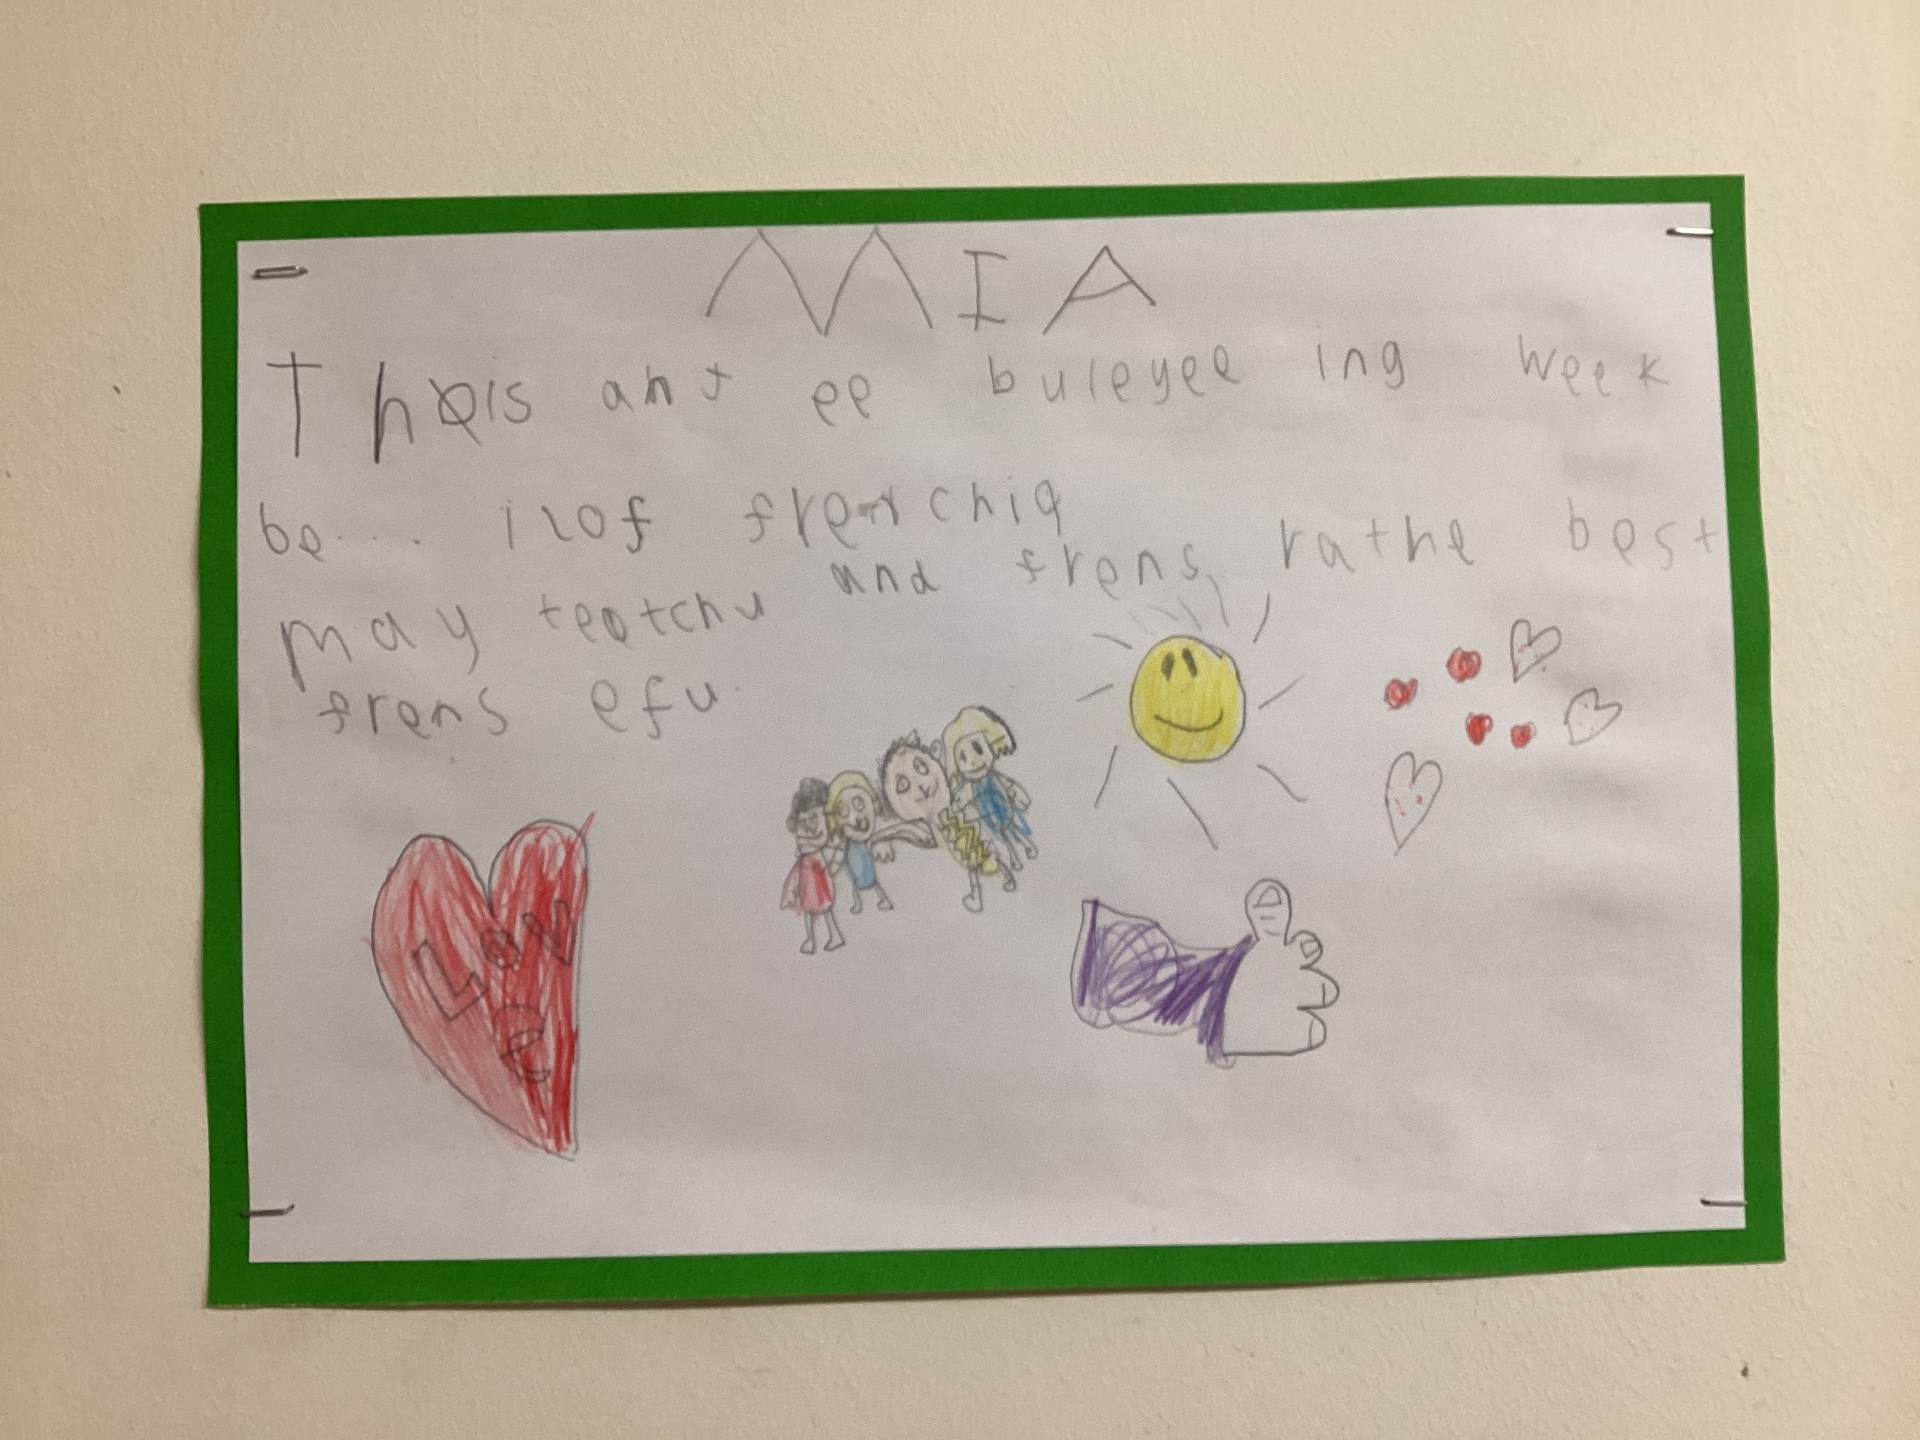 MIA
This ant ee buleyee ing week
be.... i lof frenchiq
and frens ra the best
may teatchu
frens efu.
Love